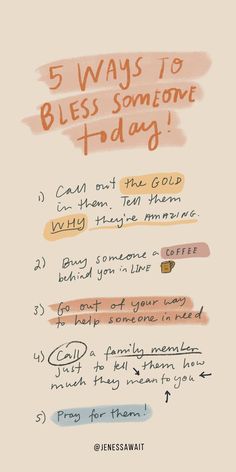 5 WAYS TO
BLESS SOMEONE
today!
1) Call out the GOLD
in them. Tell them
WHY they're AMAZING.
2) Buy someone a COFFEE
behind you in LINE
3) Go out of your way
to help someone in need
4) Call a family member
just to tell them how
much they mean to you
5) Pray for them!
@JENESSAWAIT